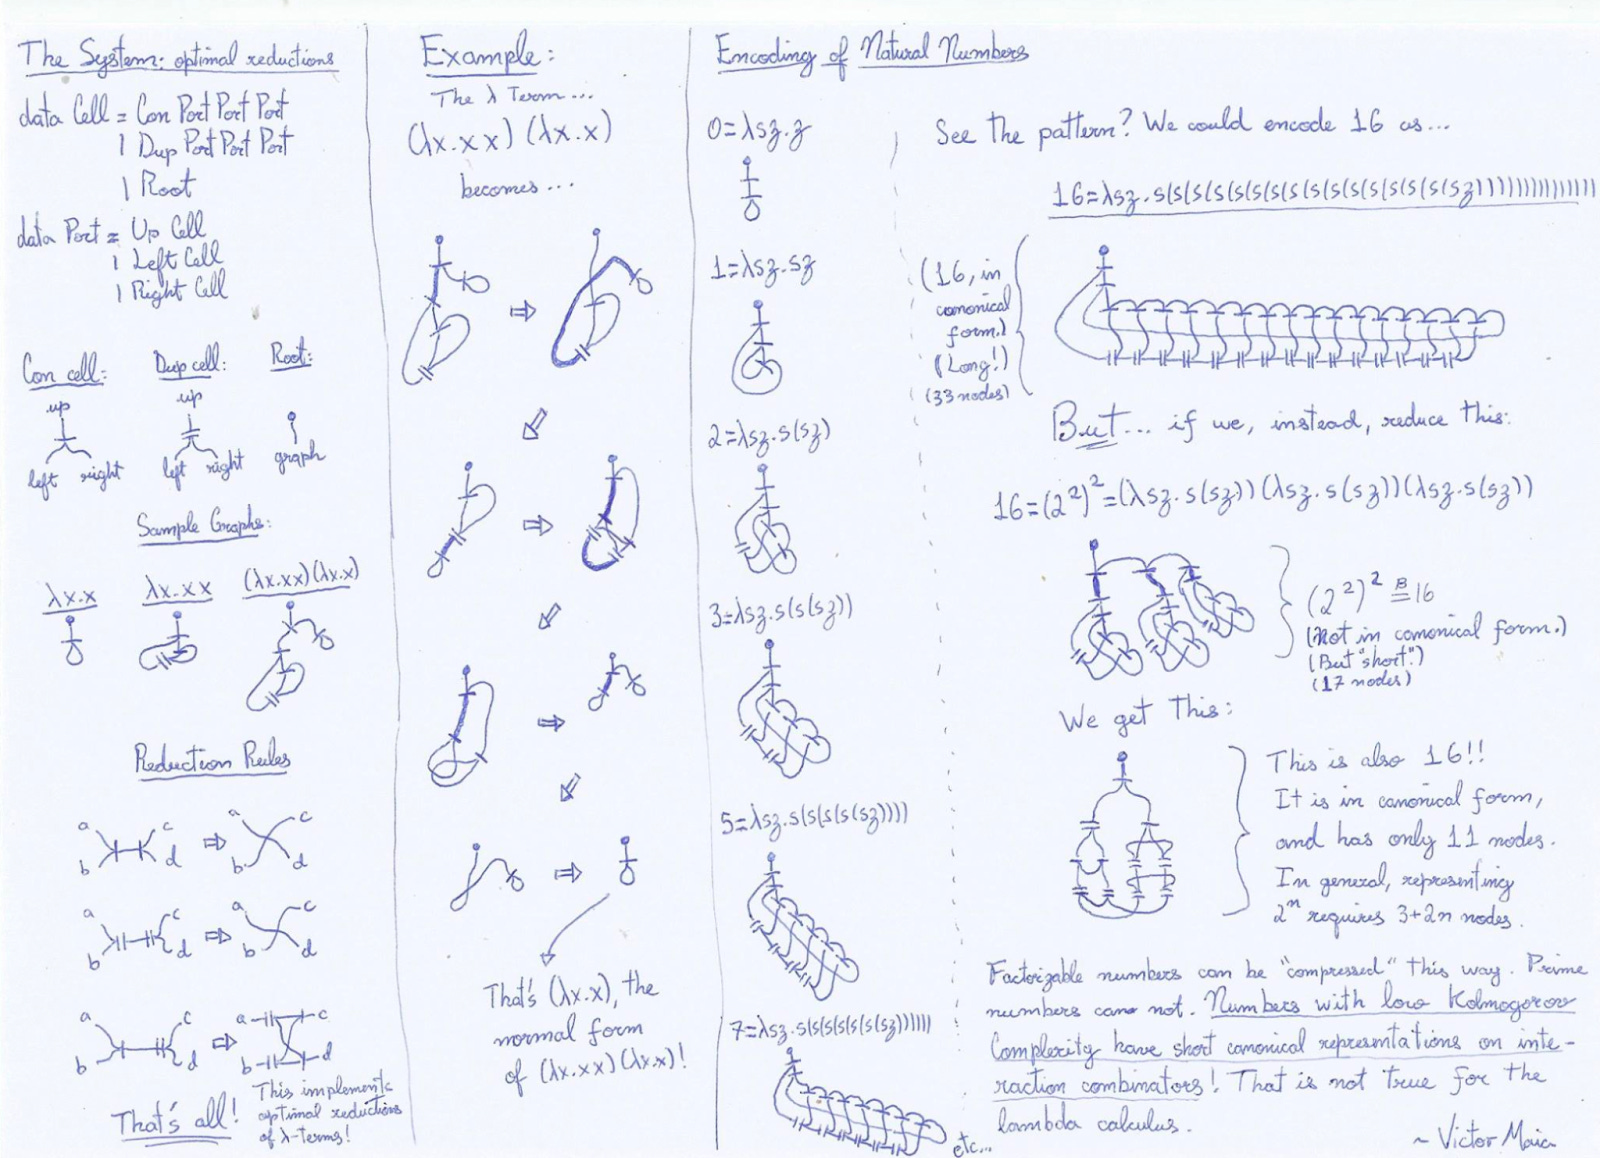 The System: optimal reductions
data Cell = Con Port Port Port
| Dup Port Port Port
| Root
data Port = Up Cell
| Left Cell
| Right Cell
Con cell:
up
left right
Dup cell:
up
left right
Root:
graph
Sample Graphs:
λx.x
λx.xx
(λx.xx)(λx.x)
Reduction Rules
a c ⇒ a c
b d b d
a c ⇒ a c
b d b d
a c ⇒ a c
b d b d
That's all!
This implements
optimal reductions
of λ-terms!
Example:
The λ Term...
(λx.xx)(λx.x)
becomes...
That's (λx.x), the
normal form
of (λx.xx)(λx.x)!
Encoding of Natural Numbers
0=λsz.z
1=λsz.sz
2=λsz.s(sz)
3=λsz.s(s(sz))
5=λsz.s(s(s(s(sz))))
7=λsz.s(s(s(s(s(s(sz))))))
etc...
See the pattern? We could encode 16 as...
16=λsz.s(s(s(s(s(s(s(s(s(s(s(s(s(s(s(sz)))))))))))))))
(16, in
canonical
form.)
(Long!)
(33 nodes)
But... if we, instead, reduce this:
16=(2²)²=(λsz.s(sz))(λsz.s(sz))(λsz.s(sz))
(2²)² ≞ 16
(Not in canonical form.)
(But "short".)
(17 nodes)
We get this:
This is also 16!!
It is in canonical form,
and has only 11 nodes.
In general, representing
2ⁿ requires 3+2n nodes.
Factorizable numbers can be "compressed" this way. Prime
numbers can not. Numbers with low Kolmogorov
Complexity have short canonical representations on inte-
raction combinators! That is not true for the
lambda calculus.
~ Victor Maia